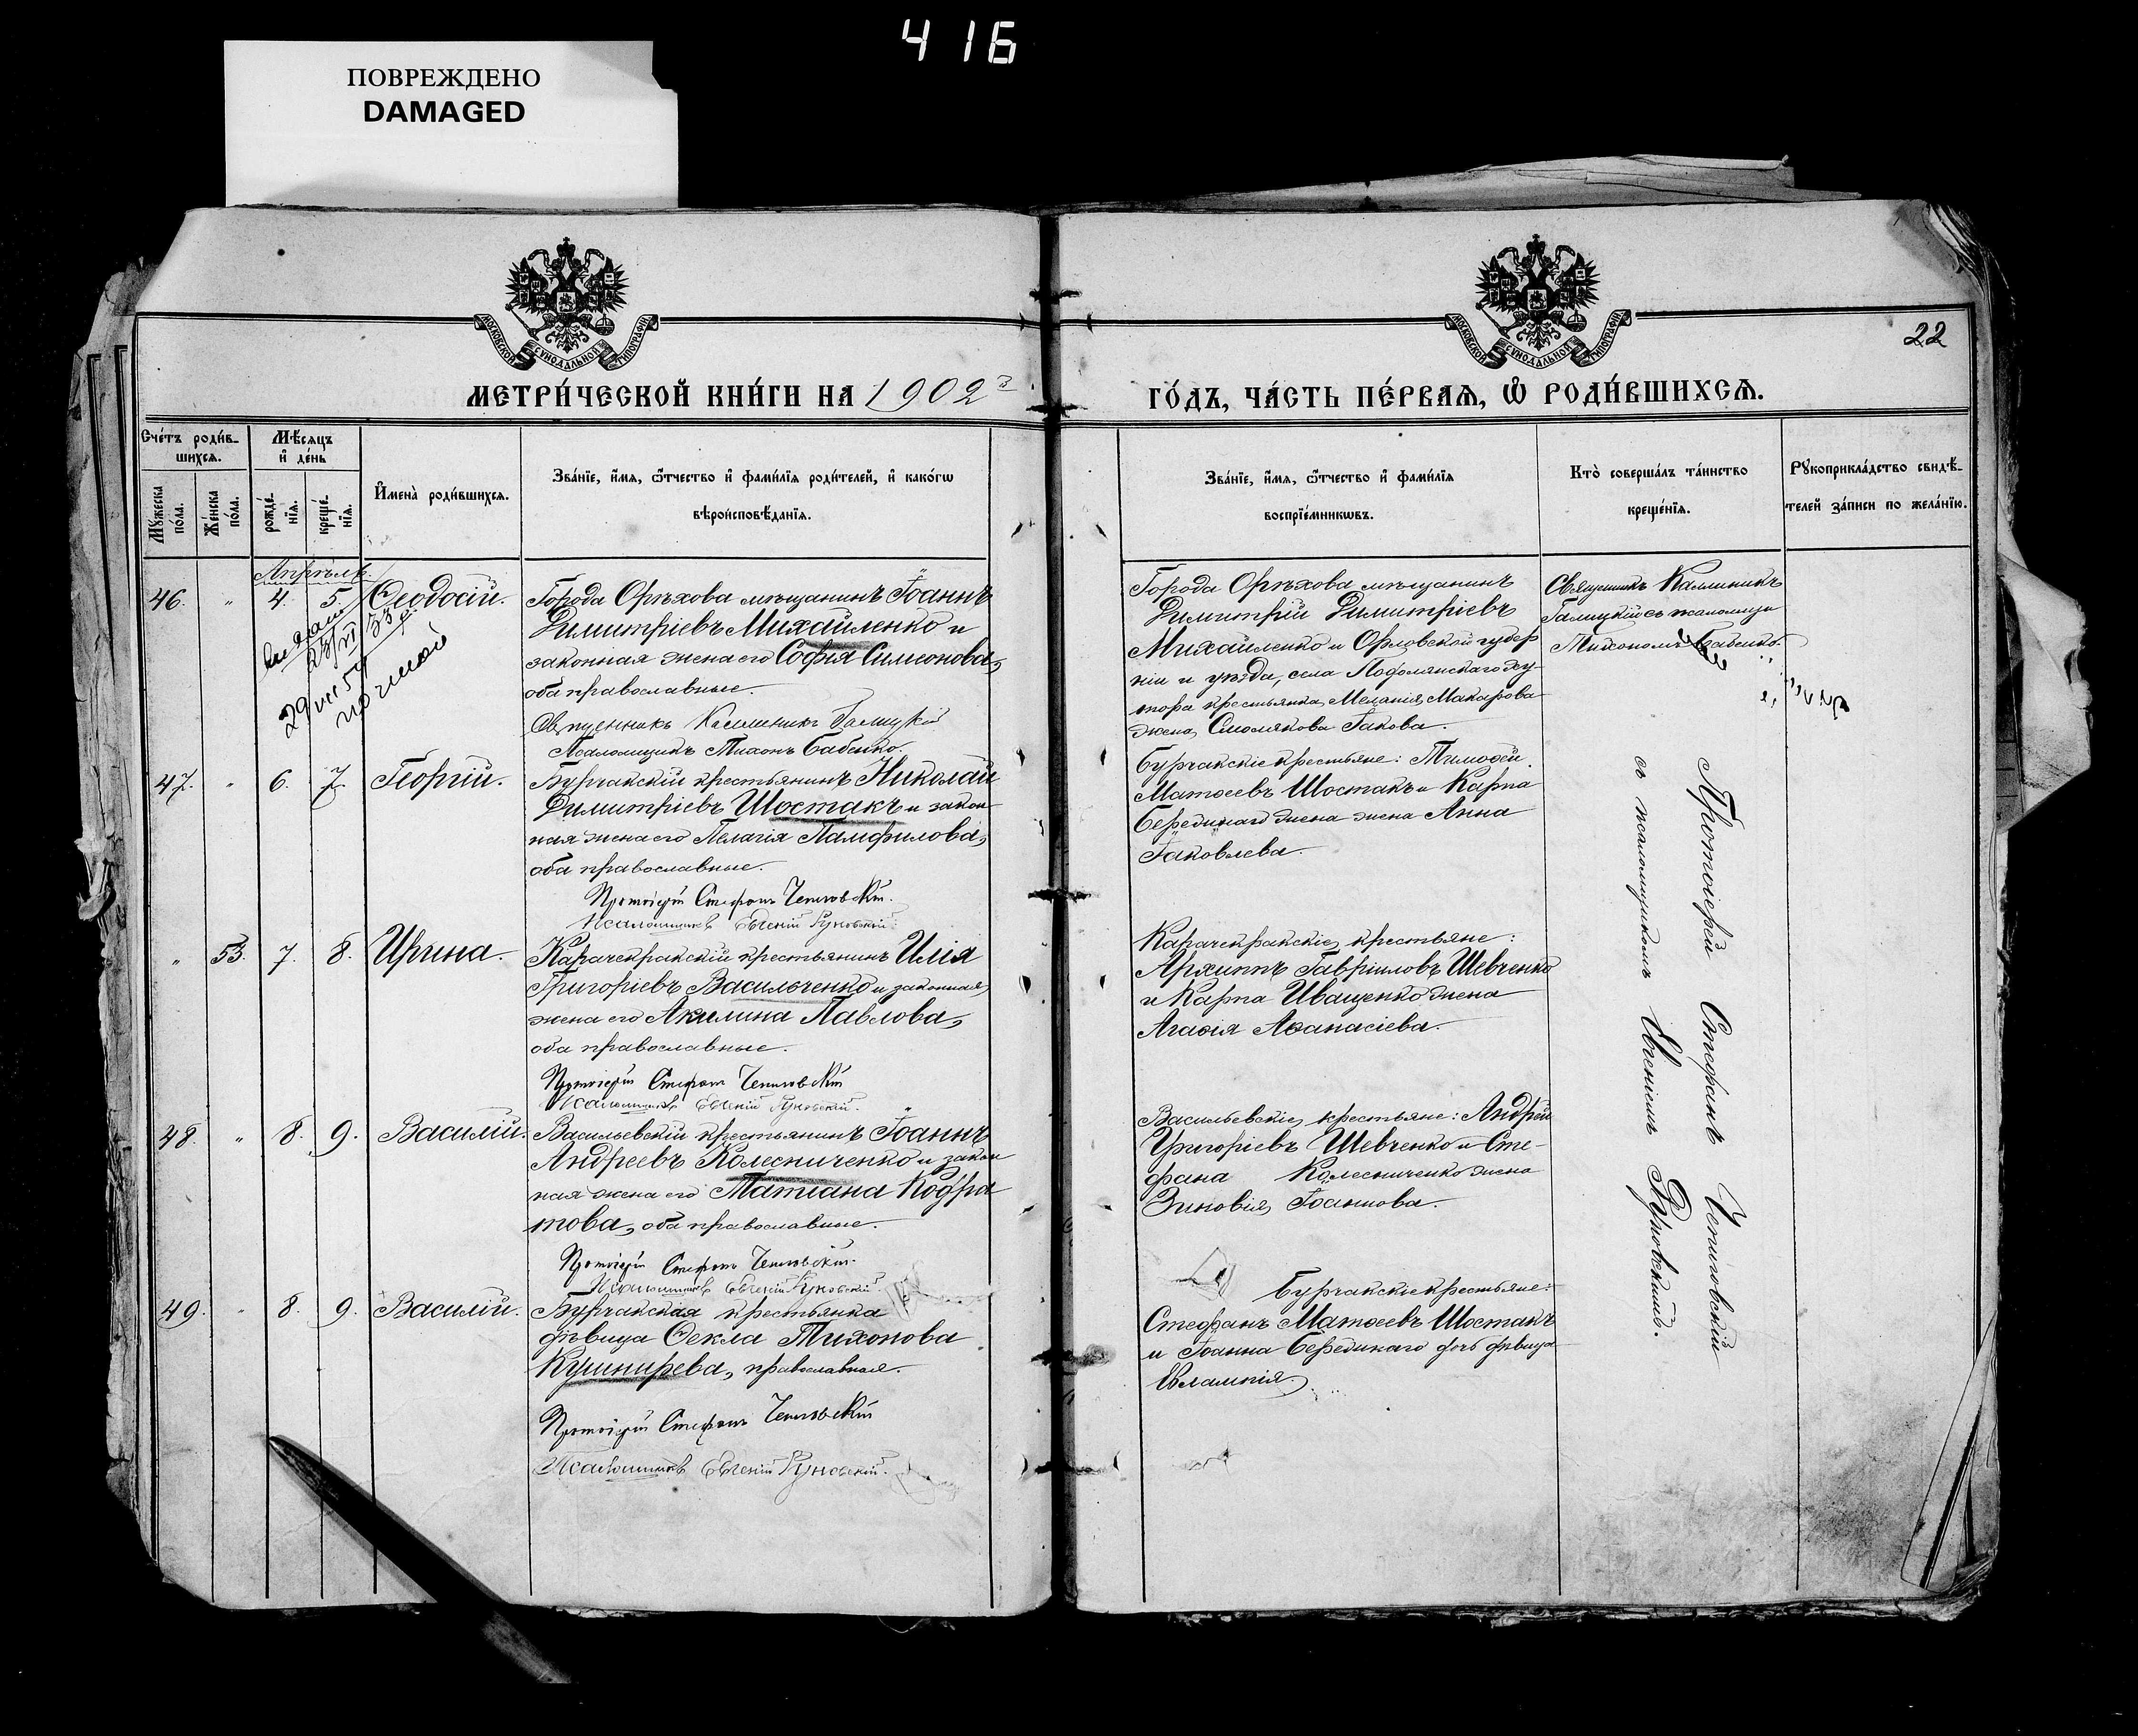 416
ПОВРЕЖДЕНО
DAMAGED
МОСКОВСКОЙ СѴНОДАЛЬНОЙ ТИПОГРАФІИ
МОСКОВСКОЙ СѴНОДАЛЬНОЙ ТИПОГРАФІИ
22
МЕТРИ́ЧЕСКОЙ КНИ́ГИ НА 1902 ГО́ДЪ, ЧА́СТЬ ПЕ́РВАѦ, Ѡ҆ РОДИ́ВШИХСѦ.
Сче́тъ роди́в-
шихсѧ.
Мꙋ́жеска по́ла.
Же́нска по́ла.
Мѣ́сѧцъ
и҆ де́нь
рожде́-
нїѧ.
креще́-
нїѧ.
И҆мена̀ роди́вшихсѧ.
Зва́нїе, и҆́мѧ, ѻ҆́тчество и҆ фами́лїѧ роди́телей, и҆ како́гѡ
вѣроисповѣ́данїѧ.
Зва́нїе, и҆́мѧ, ѻ҆́тчество и҆ фами́лїѧ
воспрїе́мникѡвъ.
Кто̀ соверша́лъ та́инство
креще́нїѧ.
Рꙋкоприкла́дство свидѣ́-
телей за́писи по жела́нїю.
Апрѣль
46. " 4. 5. Ѳеодосій.
29 VII 57
почтой
Города Орѣхова мѣщанинъ Іоаннъ
Димитріевъ Михайленко и
законная жена его Софія Симеонова,
оба православные.
Священникъ Каллиникъ Галицкій
Псаломщикъ Тихонъ Бабенко.
Города Орѣхова мѣщанинъ
Димитрій Димитріевъ
Михайленко и Орловской губер
ніи и уѣзда, села Подолянскаго ху-
тора крестьянка Меланія Макарова
жена Смолякова Іакова.
Священникъ Каллиникъ
Галицкій съ псаломщи
Тихономъ Бабенко.
47. " 6. 7. Георгій.
Бурчакскій крестьянинъ Николай
Димитріевъ Шостакъ и закон
ная жена его Пелагія Памфилова,
оба православные.
Протоіерей Стефанъ Чепиговскій.
Псаломщикъ Евгеній Руновскій.
Бурчакскіе крестьяне: Тимоѳей
Матѳеевъ Шостакъ и Карпа
Берединаго жена жена Анна
Іаковлева.
" 53. 7. 8. Ирина.
Карачекракскій крестьянинъ Илія
Григоріевъ Васильченко и законная
жена его Акилина Павлова,
оба православные.
Протоіерей Стефанъ Чепиговскій
Псаломщикъ Евгеній Руновскій.
Карачекракскіе крестьяне:
Архиппъ Гавріиловъ Шевченко
и Карпа Иващенко жена
Агаѳія Аѳанасіева.
48. " 8. 9. Василій.
Васильевскій крестьянинъ Іоаннъ
Андреевъ Колесниченко и закон
ная жена его Татіана Кодра
това, оба православные.
Протоіерей Стефанъ Чепиговскій.
Псаломщикъ Евгеній Руновскій.
Васильевскіе крестьяне: Андрей
Григоріевъ Шевченко и Сте-
фана Колесниченко жена
Зиновія Іоаннова.
49. " 8. 9. Василій.
Бурчакская крестьянка
дѣвица Ѳекла Тихонова
Кушнирева, православная.
Протоіерей Стефанъ Чепиговскій
Псаломщикъ Евгеній Руновскій.
Бурчакскіе крестьяне:
Стефанъ Матѳеевъ Шостакъ
и Іоанна Берединаго дочь дѣвица
Евлампія.
Протоіерей Стефанъ Чепиговскій
съ псаломщикомъ Евгеніемъ Руновскимъ.